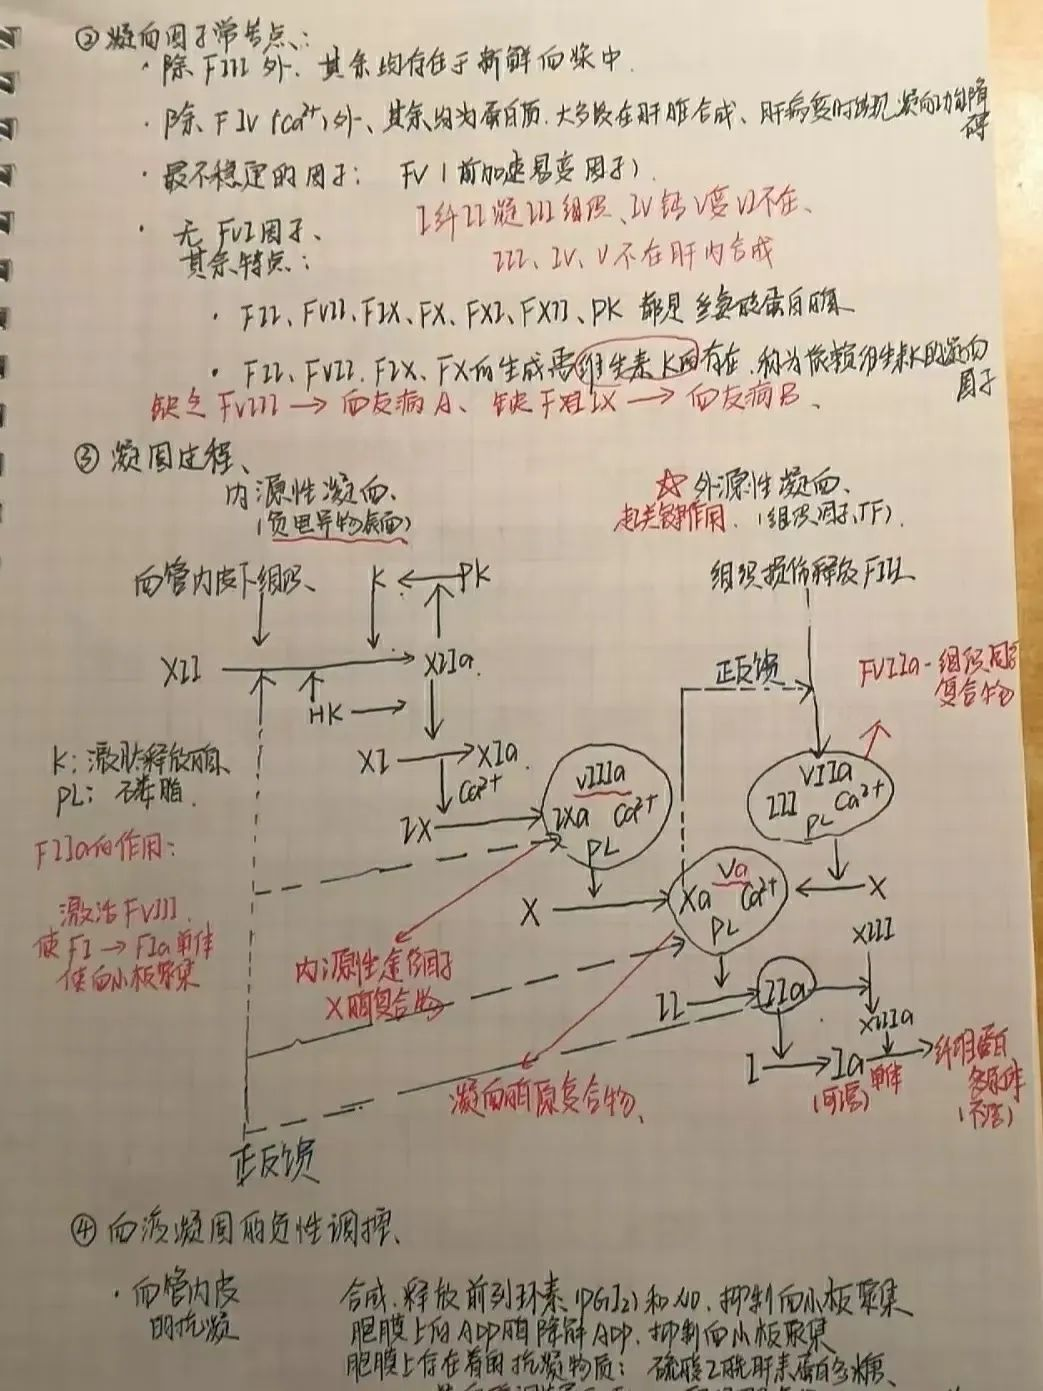 ② 凝血因子常考点：
· 除 FIII 外、其余均存在于新鲜血浆中.
· 除 FIV (Ca²⁺) 外、其余均为蛋白质. 大多数在肝脏合成、肝病变时出现凝血功能障碍
· 最不稳定的因子： FV (前加速易变因子).
· 无 FVI因子、
I纤II凝III组织、IV钙V变VI不在、
其余特点：
III、IV、V不在肝内合成
· FII、FVII、FIX、FX、FXI、FXII、PK 都是丝氨酸蛋白酶
· FII、FVII. FIX、FX的生成需维生素K的存在. 称为依赖维生素K的凝血因子
缺乏FVIII → 血友病A、缺乏FIX → 血友病B、
③ 凝固过程、
内源性凝血、
(负电异物表面)
☆ 外源性凝血、
起关键作用. (组织因子、TF).
血管内皮下组织、
K ← PK
组织损伤释放FIII、
XII → XIIa
正反馈
FVIIa-组织因子复合物
HK →
K: 激肽释放酶、
PL: 磷脂.
XI → XIa
Ca²⁺
IX →
VIIIa
IXa Ca²⁺
PL
VIIa
III Ca²⁺
PL
FIIa的作用：
激活FVIII.
使FI → FIa单体
使血小板聚集
X →
Va
Xa Ca²⁺
PL
← X
XIII
内源性途径因子
X酶复合物
II → IIa →
XIIIa
I → Ia 单体 → 纤维蛋白
多聚体
(可溶)
(不溶)
凝血酶原复合物、
正反馈
④ 血液凝固的负性调控、
· 血管内皮
的抗凝
合成、释放前列环素(PGI₂)和NO、抑制血小板聚集
胞膜上的ADP酶降解ADP、抑制血小板聚集
胞膜上存在着的抗凝物质： 硫酸乙酰肝素蛋白多糖、